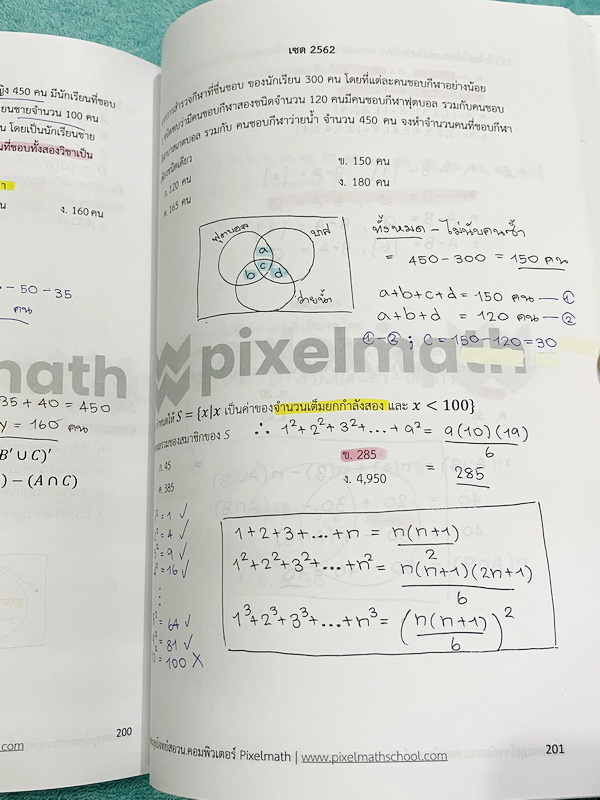 เซต 2562
ญิง 450 คน มีนักเรียนที่ชอบ
ยนชายจำนวน 100 คน
น โดยเป็นนักเรียนชาย
นที่ชอบทั้งสองวิชาเป็น
ง. 160 คน
- 50 - 35
คน
35 + 40 = 450
y = 160 คน
B' ∪ C)'
) − (A ∩ C)
200
.com
การสำรวจกีฬาที่ชื่นชอบ ของนักเรียน 300 คน โดยที่แต่ละคนชอบกีฬาอย่างน้อย
ชนิดพบว่ามีคนชอบกีฬาสองชนิดจำนวน 120 คนมีคนชอบกีฬาฟุตบอล รวมกับคนชอบ
บาสเกตบอล รวมกับ คนชอบกีฬาว่ายน้ำ จำนวน 450 คน จงหาจำนวนคนที่ชอบกีฬา
ชนิดเดียว
ก. 120 คน
ข. 150 คน
ค. 165 คน
ง. 180 คน
ฟุตบอล
บาส
a
b c d
ว่ายน้ำ
ทั้งหมด - ไม่นับคนซ้ำ
= 450 - 300 = 150 คน
a+b+c+d = 150 คน — ①
a+b+d = 120 คน — ②
①-② ; C = 150 - 120 = 30
math
pixelmath
S = {x|x เป็นค่าของจำนวนเต็มยกกำลังสอง และ x < 100}
รวมของสมาชิกของ S
∴ 1²+2²+3²+...+9² = 9(10)(19)/6
= 285
ก. 45
ข. 285
ค. 385
ง. 4,950
² = 1 ✓
² = 4 ✓
² = 9 ✓
² = 16 ✓
⋮
² = 64 ✓
² = 81 ✓
= 100 X
1+2+3+...+n = n(n+1)/2
1²+2²+3²+...+n² = n(n+1)(2n+1)/6
1³+2³+3³+...+n³ = (n(n+1)/6)²
โจทย์สอวน.คอมพิวเตอร์ Pixelmath | www.pixelmathschool.com
201